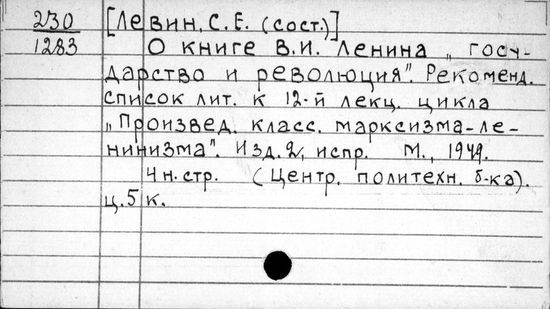 230 [Левин, С. Е. (сост.)]
1283 О книге В.И. Ленина „Госу-
дарство и революция". Рекоменд.
список лит. к 12-й лекц. цикла
„Произвед. класс. марксизма-ле-
нинизма". Изд. 2, испр. М., 1949.
4 н. стр. (Центр. политехн. б-ка).
ц. 5 к.